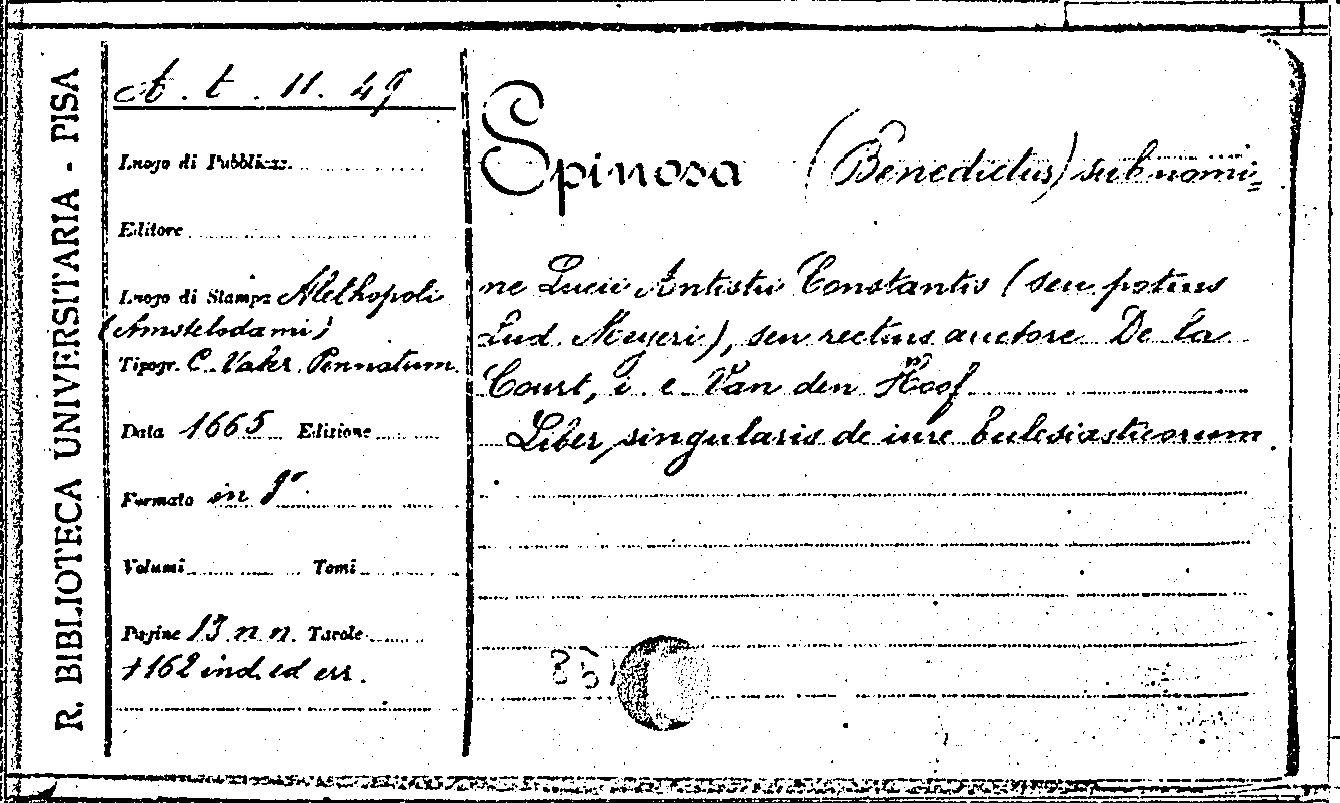 R. BIBLIOTECA UNIVERSITARIA - PISA
A. t. 11. 49
Luogo di Pubblicaz.
Editore
Luogo di Stampa Alethopoli
(Amstelodami)
Tipogr. C. Valer. Pennatum
Data 1665 Edizione
Formato in 8°
Volumi Tomi
Pagine 13 n n. Tavole
+162 ind. ed err.
Spinosa (Benedictus) sub nomi=
ne Lucii Antistii Constantis (seu potius
Lud. Meyeri), seu rectius auctore De la
Court, i. e. Van den Hoof
Liber singularis de iure Eulesiasticorum